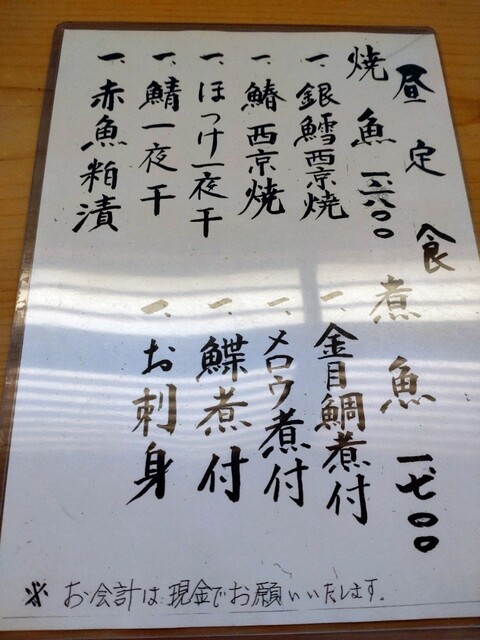 昼定食
焼魚 一、六〇〇
一、銀鱈西京焼
一、鰆西京焼
一、ほっけ一夜干
一、鯖一夜干
一、赤魚粕漬
煮魚 一、七〇〇
一、金目鯛煮付
一、メロウ煮付
一、鰈煮付
一、お刺身
※お会計は現金でお願いいたします。